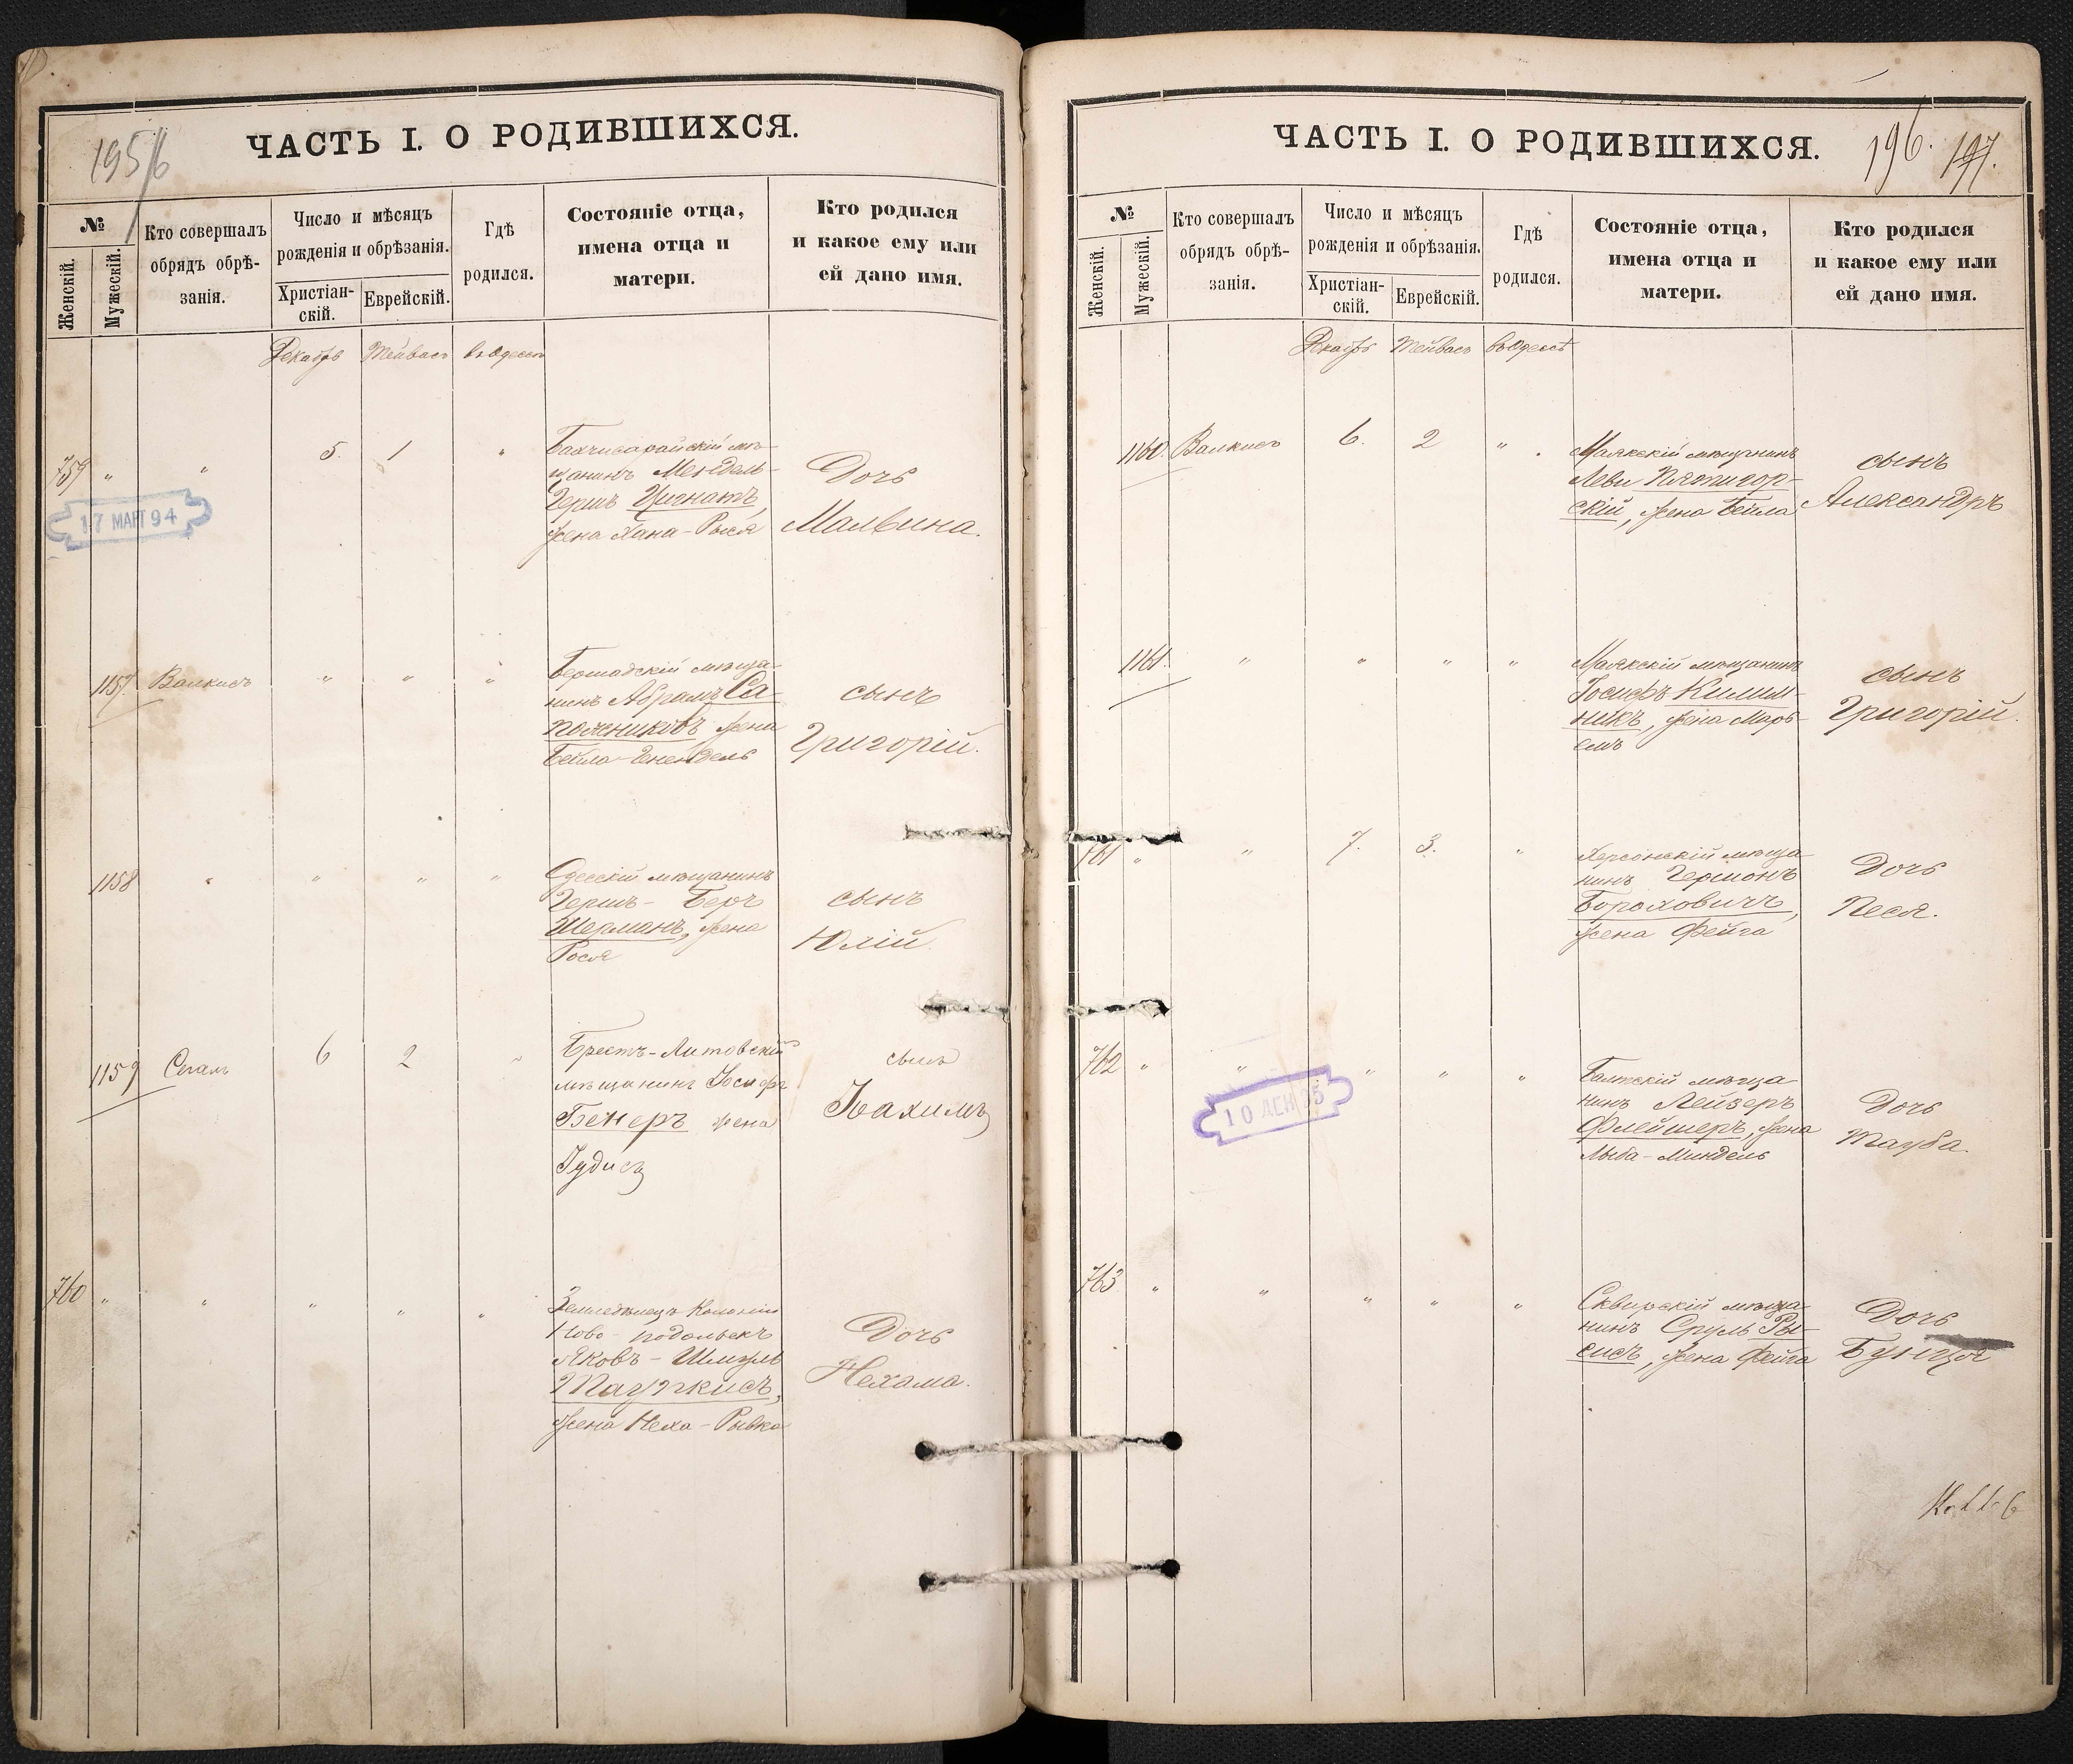 195/6
ЧАСТЬ I. О РОДИВШИХСЯ.
№
Женскій.
Мужескій.
Кто совершалъ
обрядъ обрѣ-
занія.
Число и мѣсяцъ
рожденія и обрѣзанія.
Христіан-
скій.
Еврейскій.
Гдѣ
родился.
Состояніе отца,
имена отца и
матери.
Кто родился
и какое ему или
ей дано имя.
Декабрь Тейвасъ въ Одессѣ
759 " " 5. 1 "
Бахчисарайскій мѣ-
щанинъ Мендель-
Гершъ Цигнатъ,
жена Хана-Рыся
Дочь
Малвина.
17 МАР 94
1157. Валкисъ " " "
Бершадскій мѣща-
нинъ Абрамъ Са-
пожниковъ жена
Бейла-Генендель
сынъ
Григорій.
1158 " " " "
Одесскій мѣщанинъ
Гершъ-Беръ
Шерманъ, жена
Рося
сынъ
Юлій.
1159 Сегалъ 6 2 "
Брестъ-Литовскій
мѣщанинъ Іосифъ
Бенеръ жена
Іудисъ
сынъ
Іоахимъ
760 " " " " "
Земледѣлецъ Колоніи
Ново-подольскъ
Яковъ-Шмуль
Таупкисъ,
жена Неха-Рывка
Дочь
Нехама.
ЧАСТЬ I. О РОДИВШИХСЯ.
196. 197.
№
Женскій.
Мужескій.
Кто совершалъ
обрядъ обрѣ-
занія.
Число и мѣсяцъ
рожденія и обрѣзанія.
Христіан-
скій.
Еврейскій.
Гдѣ
родился.
Состояніе отца,
имена отца и
матери.
Кто родился
и какое ему или
ей дано имя.
Декабрь Тейвасъ въ Одессѣ
1160. Валкисъ 6. 2 "
Маякскій мѣщанинъ
Леви Пятигор-
скій, жена Бейла
сынъ
Александръ
1161. " " " "
Маякскій мѣщанинъ
Іосифъ Килим-
никъ, жена Марь-
емъ
сынъ
Григорій.
761 " " 7. 3. "
Херсонскій мѣща-
нинъ Германъ
Бораховичъ,
жена Фейга
Дочь
Песя.
762 " " " " "
Балтскій мѣща-
нинъ Лейзеръ
Флейшеръ, жена
Лыба-Миндель
Дочь
Тауба.
763 " " " " "
Сквирскій мѣща-
нинъ Сруль Ры-
сисъ, жена Фейга
Дочь
Бунця